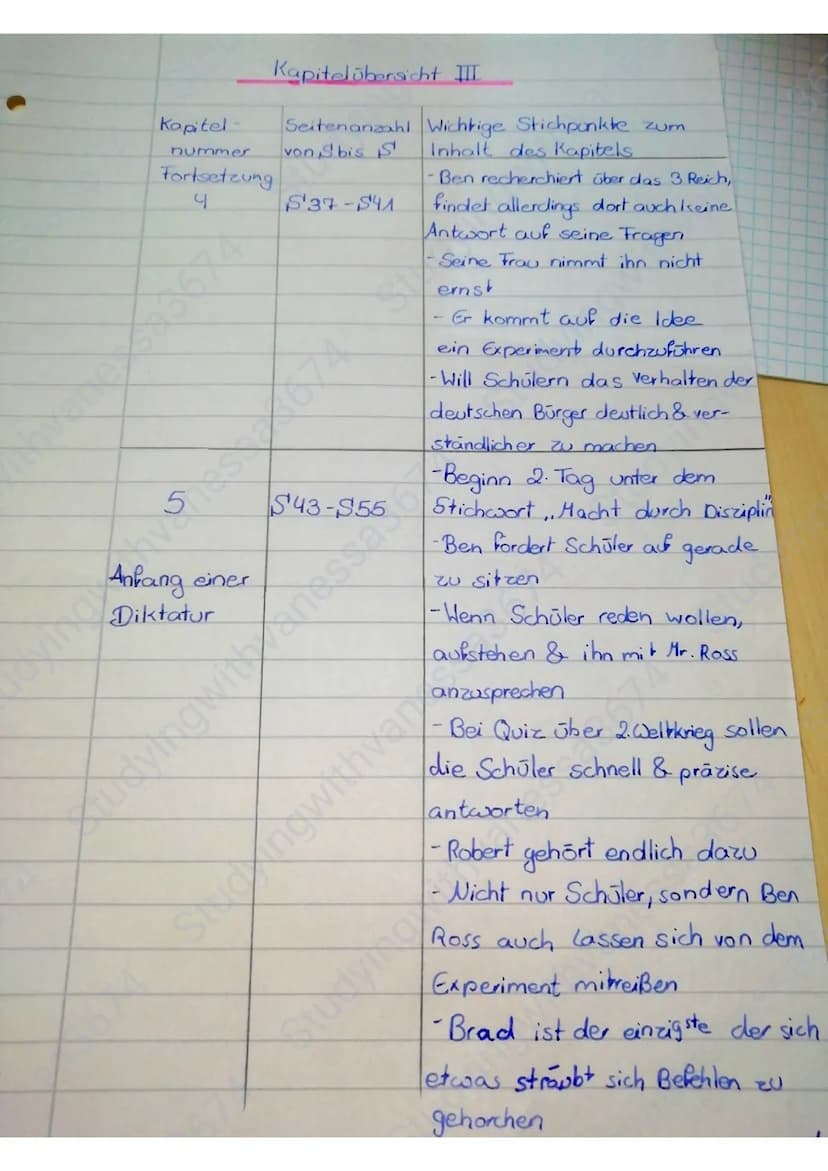 Kapitelübersicht III
Kapitel-
nummer
Seitenanzahl
von S bis S
Wichtige Stichpunkte zum
Inhalt des Kapitels
Fortsetzung
4
S37-S41
- Ben recherchiert über das 3 Reich,
findet allerdings dort auch keine
Antwort auf seine Fragen
- Seine Frau nimmt ihn nicht
ernst
- Er kommt auf die Idee
ein Experiment durchzuführen
- Will Schülern das Verhalten der
deutschen Bürger deutlich & ver-
ständlicher zu machen
5
Anfang einer
Diktatur
S43-S55
- Beginn 2. Tag unter dem
Stichwort „Macht durch Disziplin"
- Ben fordert Schüler auf gerade
zu sitzen
- Wenn Schüler reden wollen,
aufstehen & ihn mit Mr. Ross
anzusprechen
- Bei Quiz über 2.Weltkrieg sollen
die Schüler schnell & präzise
antworten
- Robert gehört endlich dazu
- Nicht nur Schüler, sondern Ben
Ross auch lassen sich von dem
Experiment mitreißen
- Brad ist der einzigste der sich
etwas sträubt sich Befehlen zu
gehorchen
Studyingwithvanessa3674